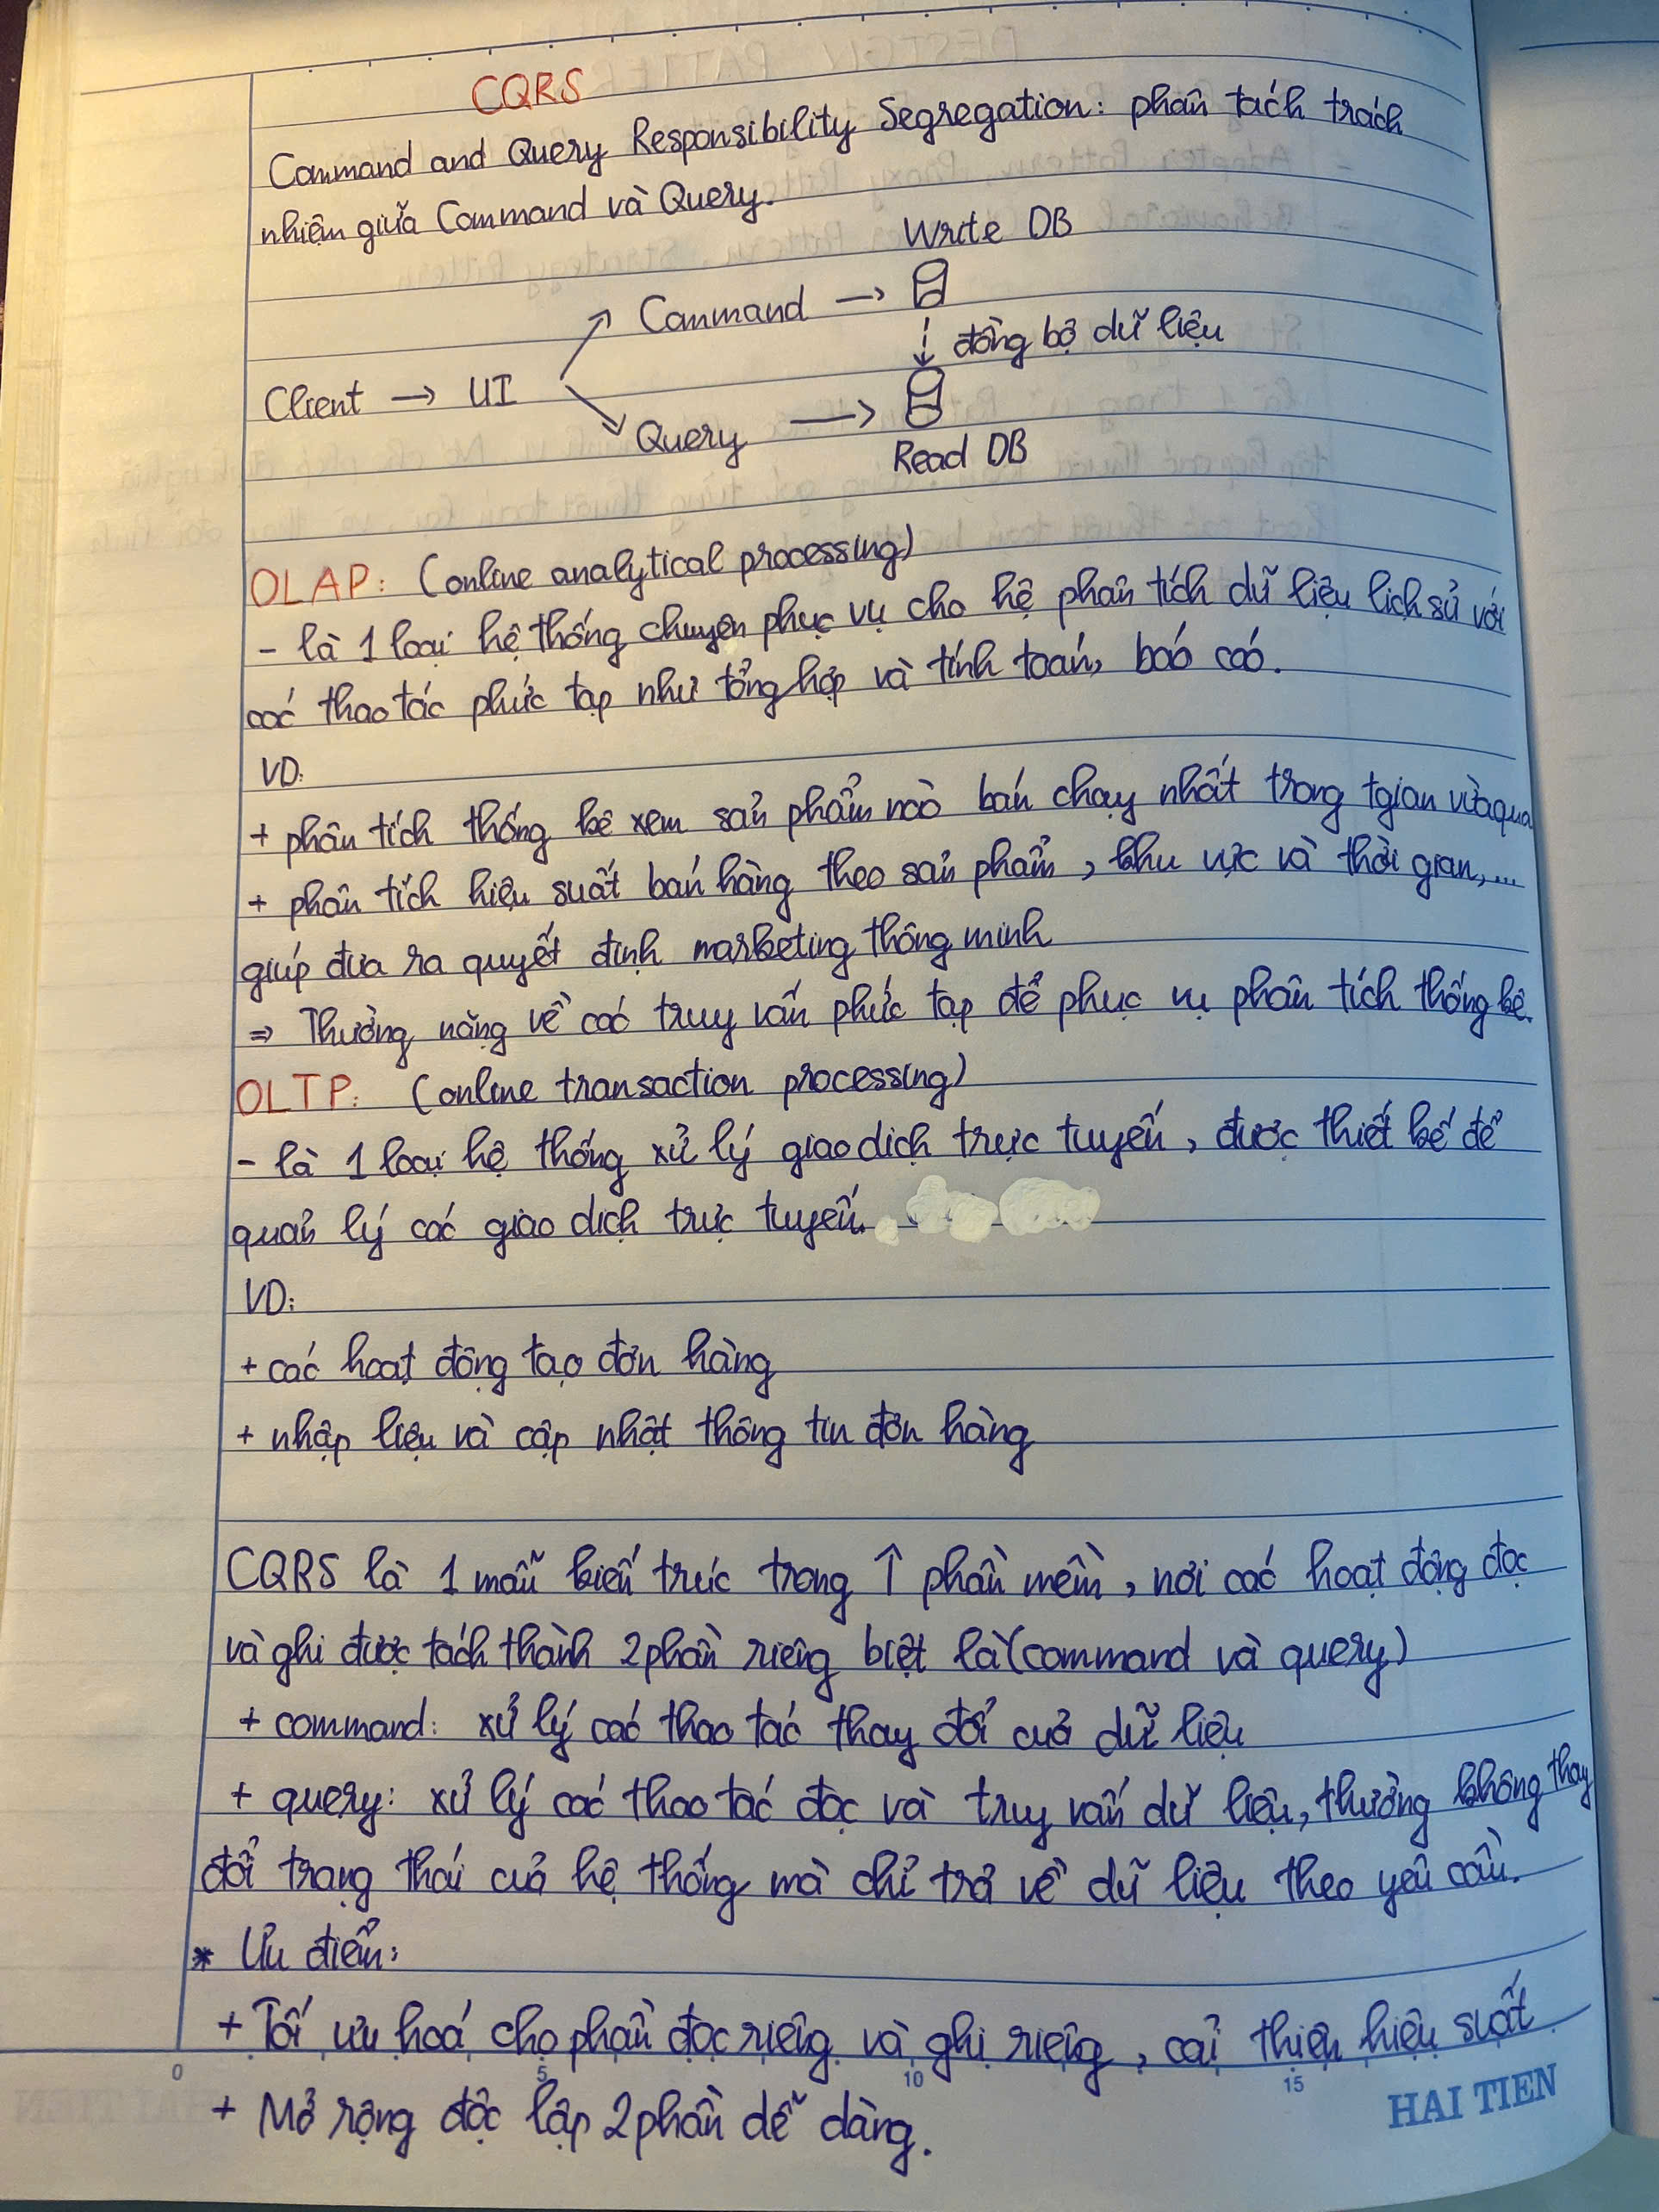 CQRS
Command and Query Responsibility Segregation: phân tách trách
nhiệm giữa Command và Query.
Write DB
Command →
đồng bộ dữ liệu
Client → UI
Query →
Read DB
OLAP: (online analytical processing)
- là 1 loại hệ thống chuyên phục vụ cho hệ phân tích dữ liệu lịch sử với
các thao tác phức tạp như tổng hợp và tính toán, báo cáo.
VD:
+ phân tích thống kê xem sản phẩm nào bán chạy nhất trong tgian vừa qua
+ phân tích hiệu suất bán hàng theo sản phẩm, khu vực và thời gian,...
giúp đưa ra quyết định marketing thông minh
⇒ Thường nặng về các truy vấn phức tạp để phục vụ phân tích thống kê.
OLTP: (online transaction processing)
- là 1 loại hệ thống xử lý giao dịch trực tuyến, được thiết kế để
quản lý các giao dịch trực tuyến.
VD:
+ các hoạt động tạo đơn hàng
+ nhập liệu và cập nhật thông tin đơn hàng
CQRS là 1 mẫu kiến trúc trong ↑ phần mềm, nơi các hoạt động đọc
và ghi được tách thành 2 phần riêng biệt là (command và query)
+ command: xử lý các thao tác thay đổi của dữ liệu
+ query: xử lý các thao tác đọc và truy vấn dữ liệu, thường không thay
đổi trạng thái của hệ thống mà chỉ trả về dữ liệu theo yêu cầu.
* Ưu điểm:
+ Tối ưu hoá cho phần đọc riêng và ghi riêng, cải thiện hiệu suất
0 5 10 15
+ Mở rộng độc lập 2 phần dễ dàng.
HAI TIEN